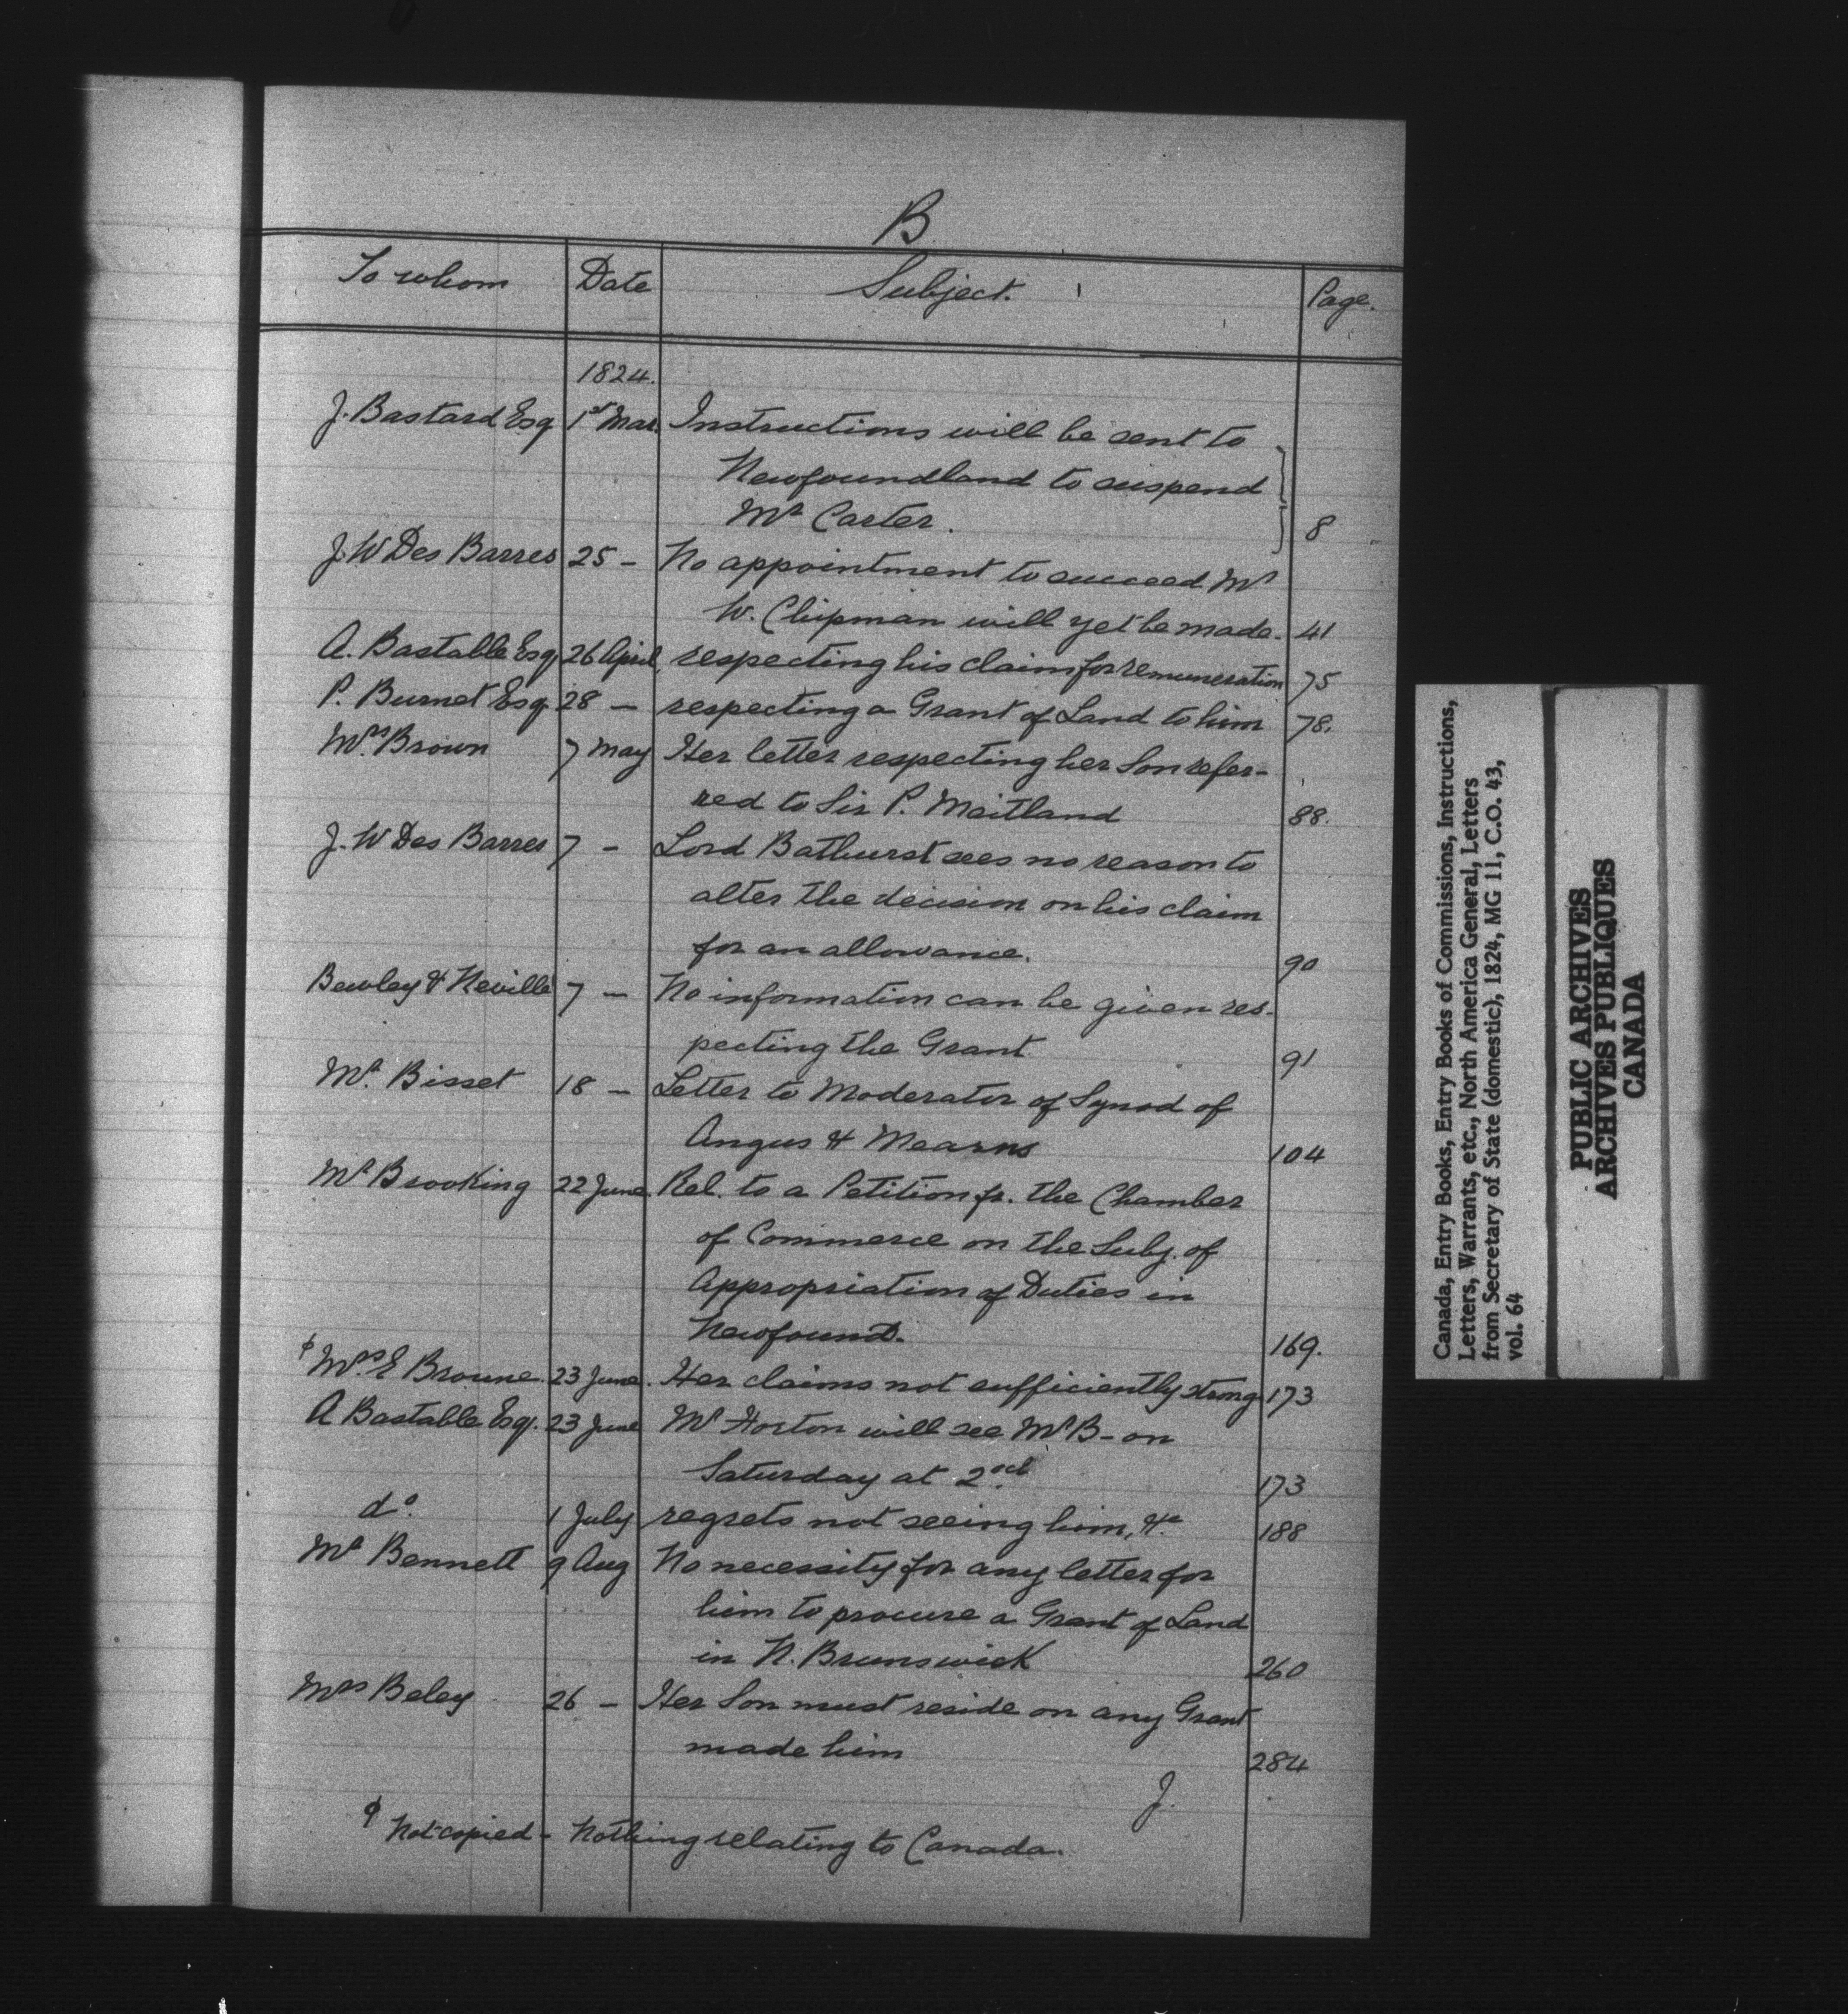 B
To whom Date Subject. Page.
1824.
J. Bastard Esq 1st Mar. Instructions will be sent to
Newfoundland to suspend
Mr Carter. 8
J. W Des Barres 25 - No appointment to succeed Mr
W. Chipman will yet be made. 41
A. Bastable Esq. 26 April respecting his claim for remuneration 75
P. Burnet Esq. 28 - respecting a Grant of Land to him 78.
Mrs Brown 7 May Her letter respecting her Son refer-
red to Sir P. Maitland 88.
J. W Des Barres 7 - Lord Bathurst sees no reason to
alter the decision on his claim
for an allowance. 90
Bewley & Neville 7 - No information can be given res-
pecting the Grant 91
Mr. Bisset 18 - Letter to Moderator of Synod of
Angus & Mearns 104
Mr Brooking 22 June. Rel. to a Petition fr. the Chamber
of Commerce on the Subj. of
Appropriation of Duties in
Newfound. 169.
ϕ Mrs. E Browne. 23 June. Her claims not sufficiently strong 173
A Bastable Esq. 23 June Mr Horton will see Mr B- on
Saturday at 2 ocl 173
do. 1 July regrets not seeing him, &c 188
Mr Bennett 9 Aug No necessity for any letter for
him to procure a Grant of Land
in N. Brunswick 260
Mrs Beley 26 - Her Son must reside on any Grant
made him 284
J.
ϕ Not copied - Nothing relating to Canada.
Canada, Entry Books, Entry Books of Commissions, Instructions,
Letters, Warrants, etc., North America General, Letters
from Secretary of State (domestic), 1824, MG 11, C.O. 43,
vol. 64
PUBLIC ARCHIVES
ARCHIVES PUBLIQUES
CANADA